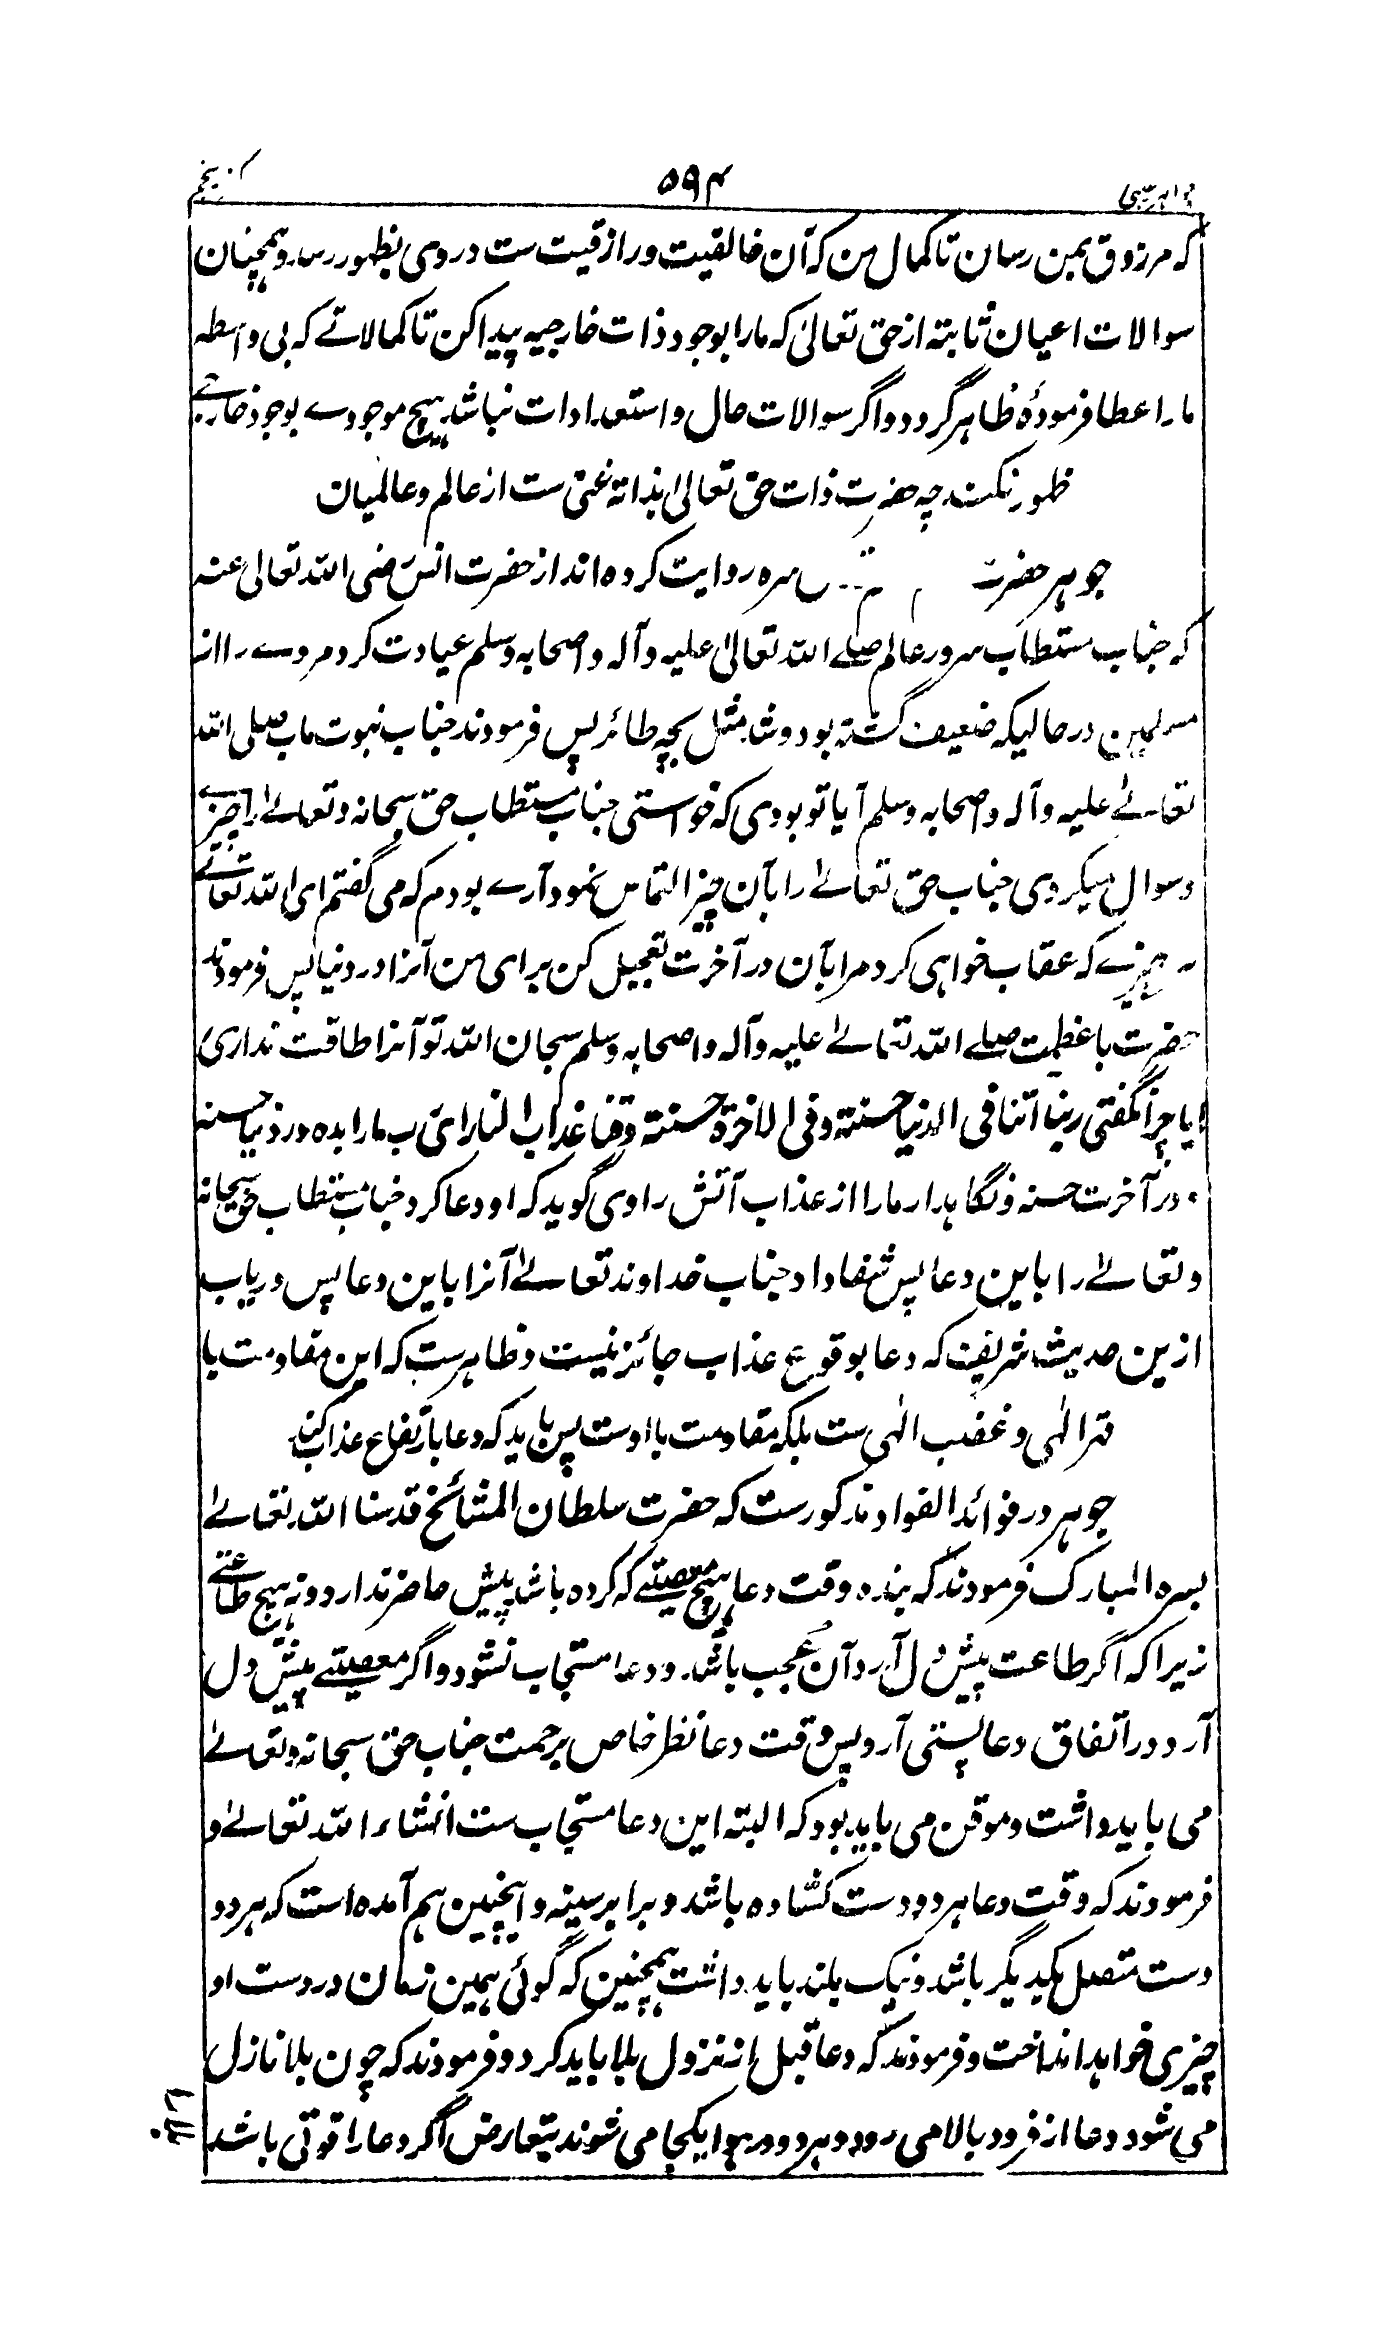 ۵۹۴
که مرزوق بمن رسان تا کمال من که آن خالقیت و رازقیت ست در وی بظهور رسد و همچنان
سوالات اعیان ثابتة از حق تعالیٰ که ما را بوجود ذات خارجیه پیدا کن تا کمالاتے که بی واسطه
ما را عطا فرمودهٔ ظاهر گردد و اگر سوالات حال و استعدادات نباشد هیچ موجودے بوجود خارجے
ظهور نکند چه حضرت ذات حق تعالیٰ بذاته غنی ست از عالم و عالمیان
جوهر حضرت سره روایت کرده اند از حضرت انس رضی الله تعالی عنه
که جناب مستطاب سرور عالم صلے الله تعالیٰ علیه و آله و اصحابه وسلم عیادت کرد مردے را از
مسلمین در حالیکه ضعیف گشته بود و شد مثل بچه طائر پس فرمودند جناب نبوت ماب صلی الله
تعالےٰ علیه و آله و اصحابه وسلم آیا تو بودی که خواستی جناب مستطاب حق سبحانه و تعالےٰ را چیزے
و سوال میکردی جناب حق تعالےٰ را بآن چیز التماس نمود آرے بودم که می گفتم ای الله تعالے
چیزے که عقاب خواهی کرد مرا بآن در آخرت تعجیل کن برای من آنرا در دنیا پس فرمودند
حضرت با عظمت صلے الله تعالےٰ علیه و آله و اصحابه وسلم سبحان الله تو آنرا طاقت نداری
ایا چرا نگفتی ربنا اتنا فی الدنیا حسنة و فی الاخرة حسنة و قنا عذاب النار ای رب ما را بده در دنیا حسنه
و در آخرت حسنه و نگاهدار ما را از عذاب آتش راوی گوید که او دعا کرد جناب مستطاب حق سبحانه
و تعالےٰ را باین دعا پس شفا داد جناب خداوند تعالےٰ آنرا باین دعا پس دریاب
ازین حدیث شریف که دعا بوقوع عذاب جائز نیست و ظاهر ست که این مقاومت با
قهر الٰهی و غضب الٰهی ست بلکه مقاومت با اوست پس باید که دعا بارتفاع عذاب کند
جوهر در فوائد الفواد مذکورست که حضرت سلطان المشائخ قدسنا الله تعالےٰ
بسره المبارک فرمودند که بنده وقت دعا هیچ معصیتے که کرده باشد پیش حاضر ندارد و نه هیچ طاعتے
زیرا که اگر طاعت پیش دل آرد آن عجب باشد و دعا مستجاب نشود و اگر معصیتے پیش دل
آرد در اتفاق دعا سستی آرد پس وقت دعا نظر خاص برحمت جناب حق سبحانه و تعالےٰ
می باید داشت و موقن می باید بود که البته این دعا مستجاب ست انشاء الله تعالےٰ و
فرمودند که وقت دعا هر دو دست کشاده باشد و برابر سینه و اینچنین هم آمده است که هر دو
دست متصل یکدیگر باشد و نیک بلند باید داشت همچنین که گوئی همین زمان در دست او
چیزی خواهد انداخت و فرمودند که دعا قبل از نزول بلا باید کرد و فرمودند که چون بلا نازل
می شود دعا از فرود بالا می رود و هر دو در هوا یکجا می شوند بتعارض اگر دعا را قوتی باشد